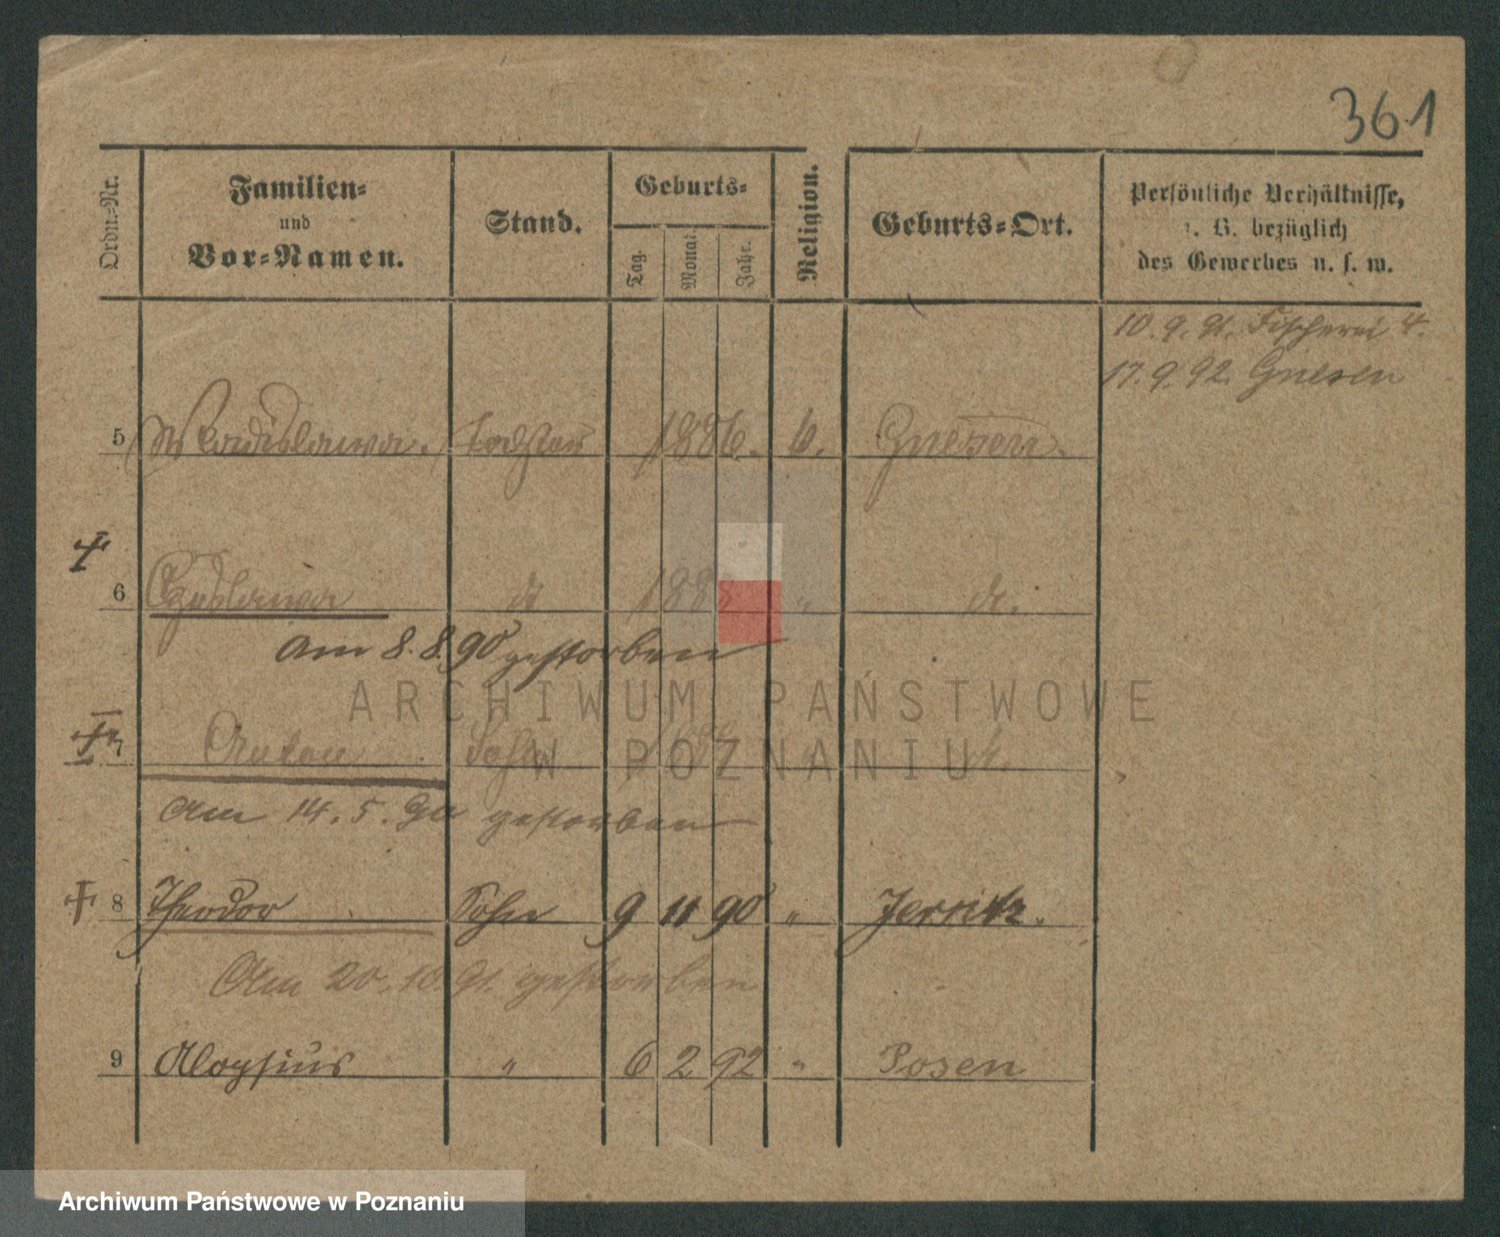 361
Ordn.-Nr. Familien- und Vor-Namen. Stand. Geburts- Tag. Monat. Jahr. Religion. Geburts-Ort. Persönliche Verhältnisse, z. B. bezüglich des Gewerbes u. s. w.
10.9.91. Fischerei 4.
17.9.92. Gnesen
5 Wladislawa. Tochter 1886. k. Gnesen.
6 Czeslawa do 188 " do.
Am 8.8.90 gestorben
ARCHIWUM PAŃSTWOWE
7 Anton Sohn
W POZNANIU
Am 14.5.90 gestorben
8 Theodor Sohn 9 11 90 " Jersitz.
Am 20.10.91. gestorben
9 Aloysius " 6 2 92 " Posen
Archiwum Państwowe w Poznaniu